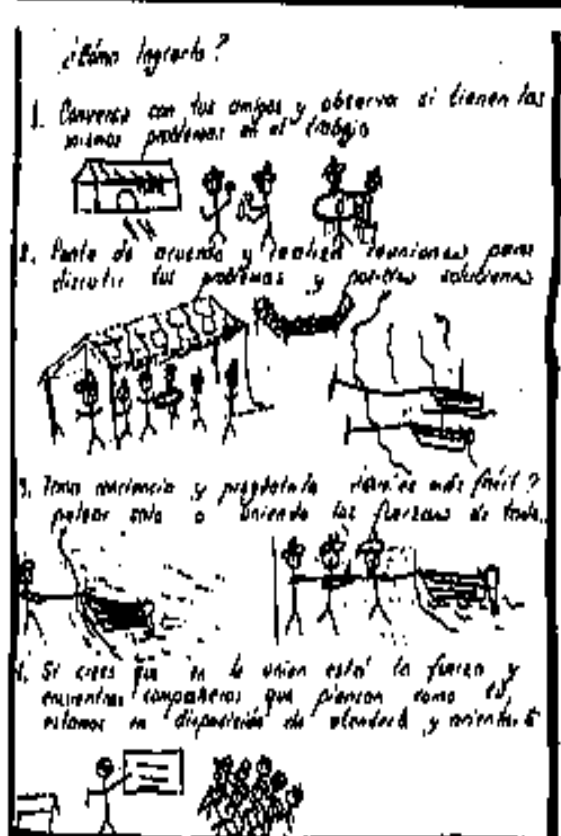 ¿Cómo lograrlo?
1. Conversa con tus amigos y observa si tienen los
mismos problemas en el trabajo
2. Ponte de acuerdo y realicen reuniones para
discutir tus problemas y posibles soluciones
3. Toma conciencia y pregúntate ¿ es más fácil?
pelear solo o uniendo las fuerzas de todos
4. Si crees que en la unión está la fuerza y
encuentras compañeros que piensan como tú
estamos en disposición de atenderte y orientarte